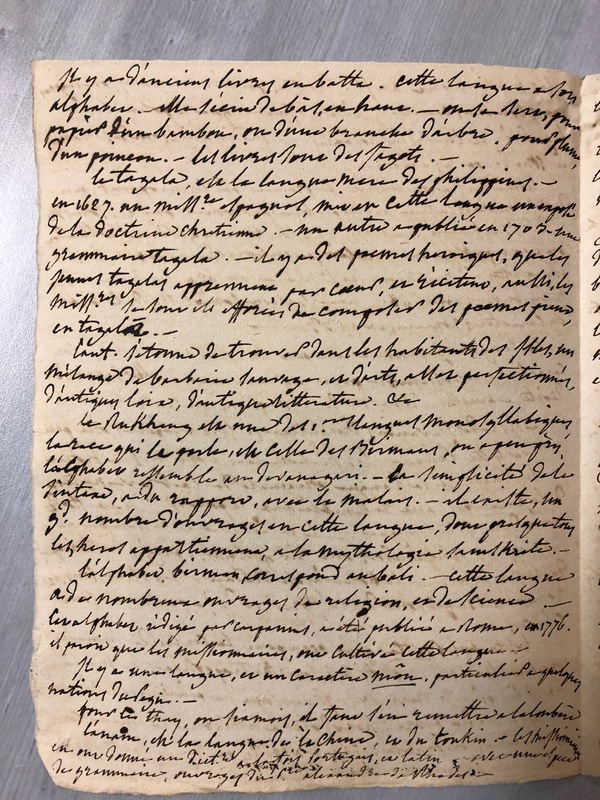 il y a d'anciens livres en batta. cette langue a son
alphabet. elle s'écrit de bas en haut. — on se sert, pour
papier d'un bambou, ou d'une branche d'arbre, pour plume,
d'un poinçon. — les livres sont des fagots. —
le tagala, est la langue mere des philippines. —
en 1627. un miss.re espagnol, mit en cette langue un exposé
de la doctrine chretienne. — un autre a publié en 1703 une
grammaire tagala. — il y a des poemes heroiques, que les
jeunes tagalas apprennent par cœur, et récitent, aussi, les
miss.res se sont ils efforcés de composer des poemes pieux,
en tagala. —
l'aut. s'étonne de trouver dans les habitants des isles, un
mélange de barbarie sauvage, et d'arts, assez perfectionnés,
d'antiques loix, d'antique litterature. &c
le Rukheng est une des langues monosyllabiques
la race qui le parle, est celle des Birmans, ou a peu près,
l'alphabet ressemble au devanagari. — la simplicité de la
sintaxe, a du rapport, avec le malais. — il existe, un
gd. nombre d'ouvrages en cette langue, dont presque tous
les heros appartiennent, a la mythologie samskrite. —
l'alphabet birman, correspond au bali. — cette langue
a de nombreux ouvrages de religion, et de science —
cet alphabet rédigé par carpanus, a été publié a Rome, en 1776.
il paroit que les missionnaires, ont cultivé cette langue. —
il y a une langue, et un caractere môn, particulier a quelques
nations du Pegu. —
pour les thay, ou siamois, il faut s'en remettre a laloubère
l'anam, est la langue de la Chine, et du tonkin — les missionnaires
en ont donné un dictre portugais, et latin — avec une espèce
de grammaire, ouvrages du alexandre de Rhodes —